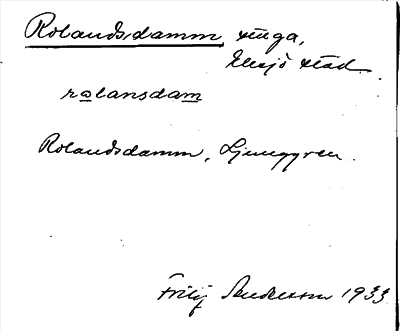 Rolandsdamm, stuga,
Eksjö stad.
rolansdam
Rolandsdamm, Ljunggren.
Fritz Andersson 1933